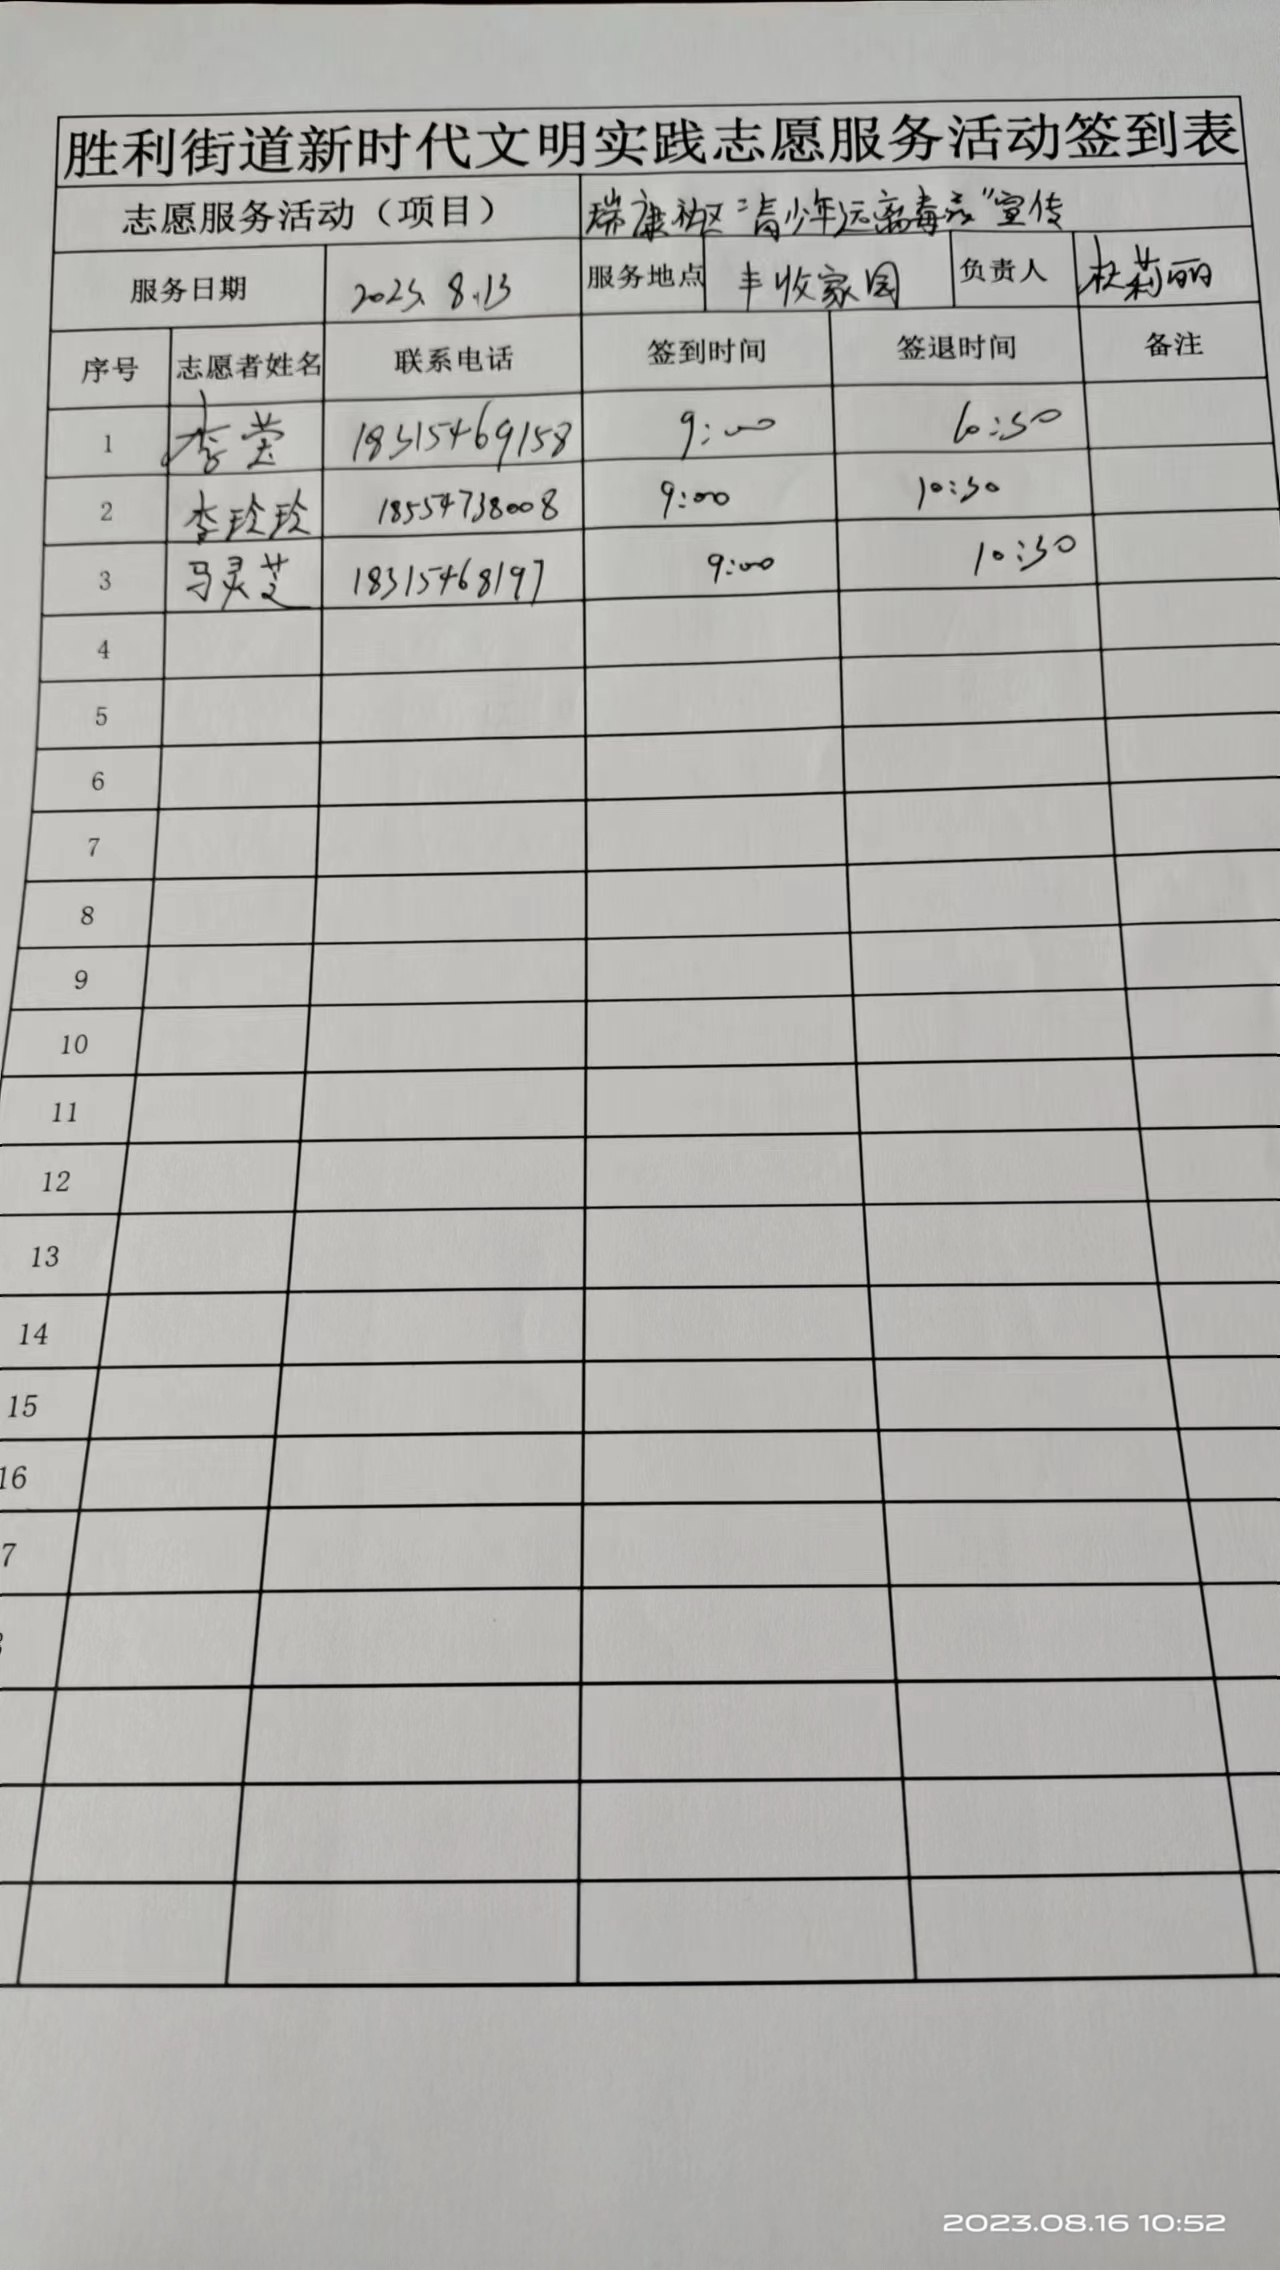 胜利街道新时代文明实践志愿服务活动签到表
志愿服务活动（项目） 瑞康社区“青少年远离毒品”宣传
服务日期 2023. 8.13 服务地点 丰收家园 负责人 杜莉丽
序号 志愿者姓名 联系电话 签到时间 签退时间 备注
1 李莹 18315469158 9:00 10:30
2 李玲玲 18554738008 9:00 10:30
3 马灵芝 18315468197 9:00 10:30
4
5
6
7
8
9
10
11
12
13
14
15
16
7
2023.08.16 10:52